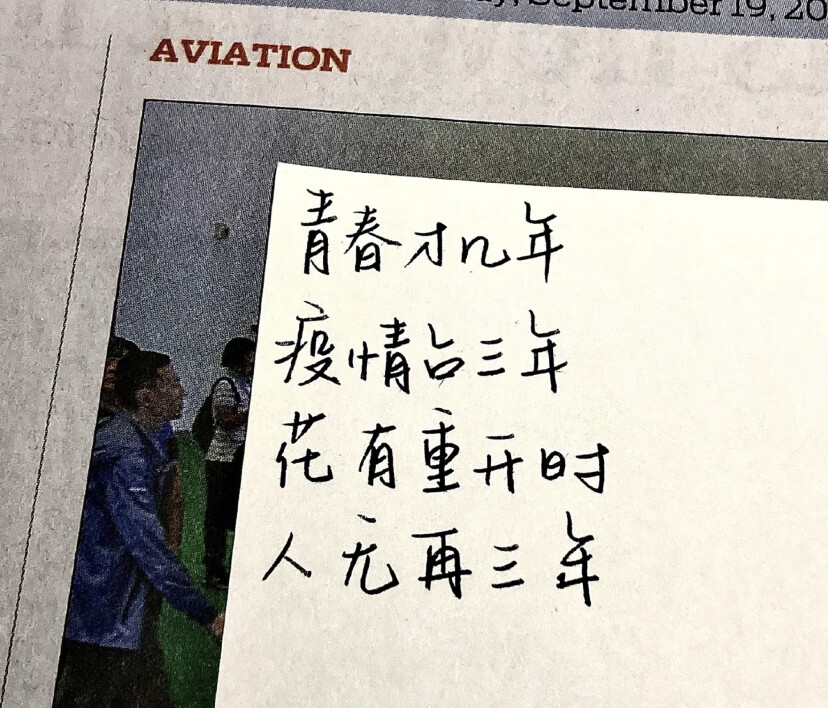 September 19, 20
AVIATION
青春才几年
疫情占三年
花有重开时
人无再三年